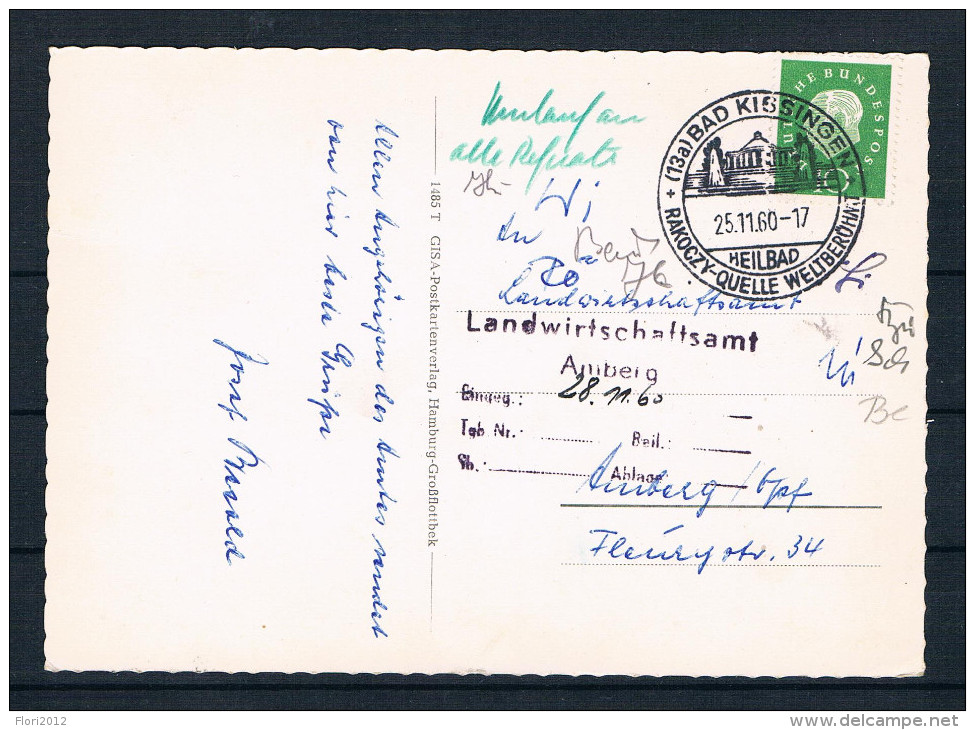 Allen Angehörigen des Amtes sendet
von hier beste Grüße
Josef
1485 T GISA-Postkartenverlag, Hamburg-Großflottbek
Umlauf an
alle Referate
DEUTSCHE BUNDESPOST
(13a) BAD KISSINGEN
25.11.60-17
HEILBAD
RAKOCZY-QUELLE WELTBERÜHMT
An
Landwirtschaftsamt
Landwirtschaftsamt
Amberg
Eingeg.: 28.11.60
Tgb. Nr.: Beil.:
Sb.: Ablage:
Amberg / Opf
Fleurystr. 34
Sch
Be
Flori2012
delcampe.net